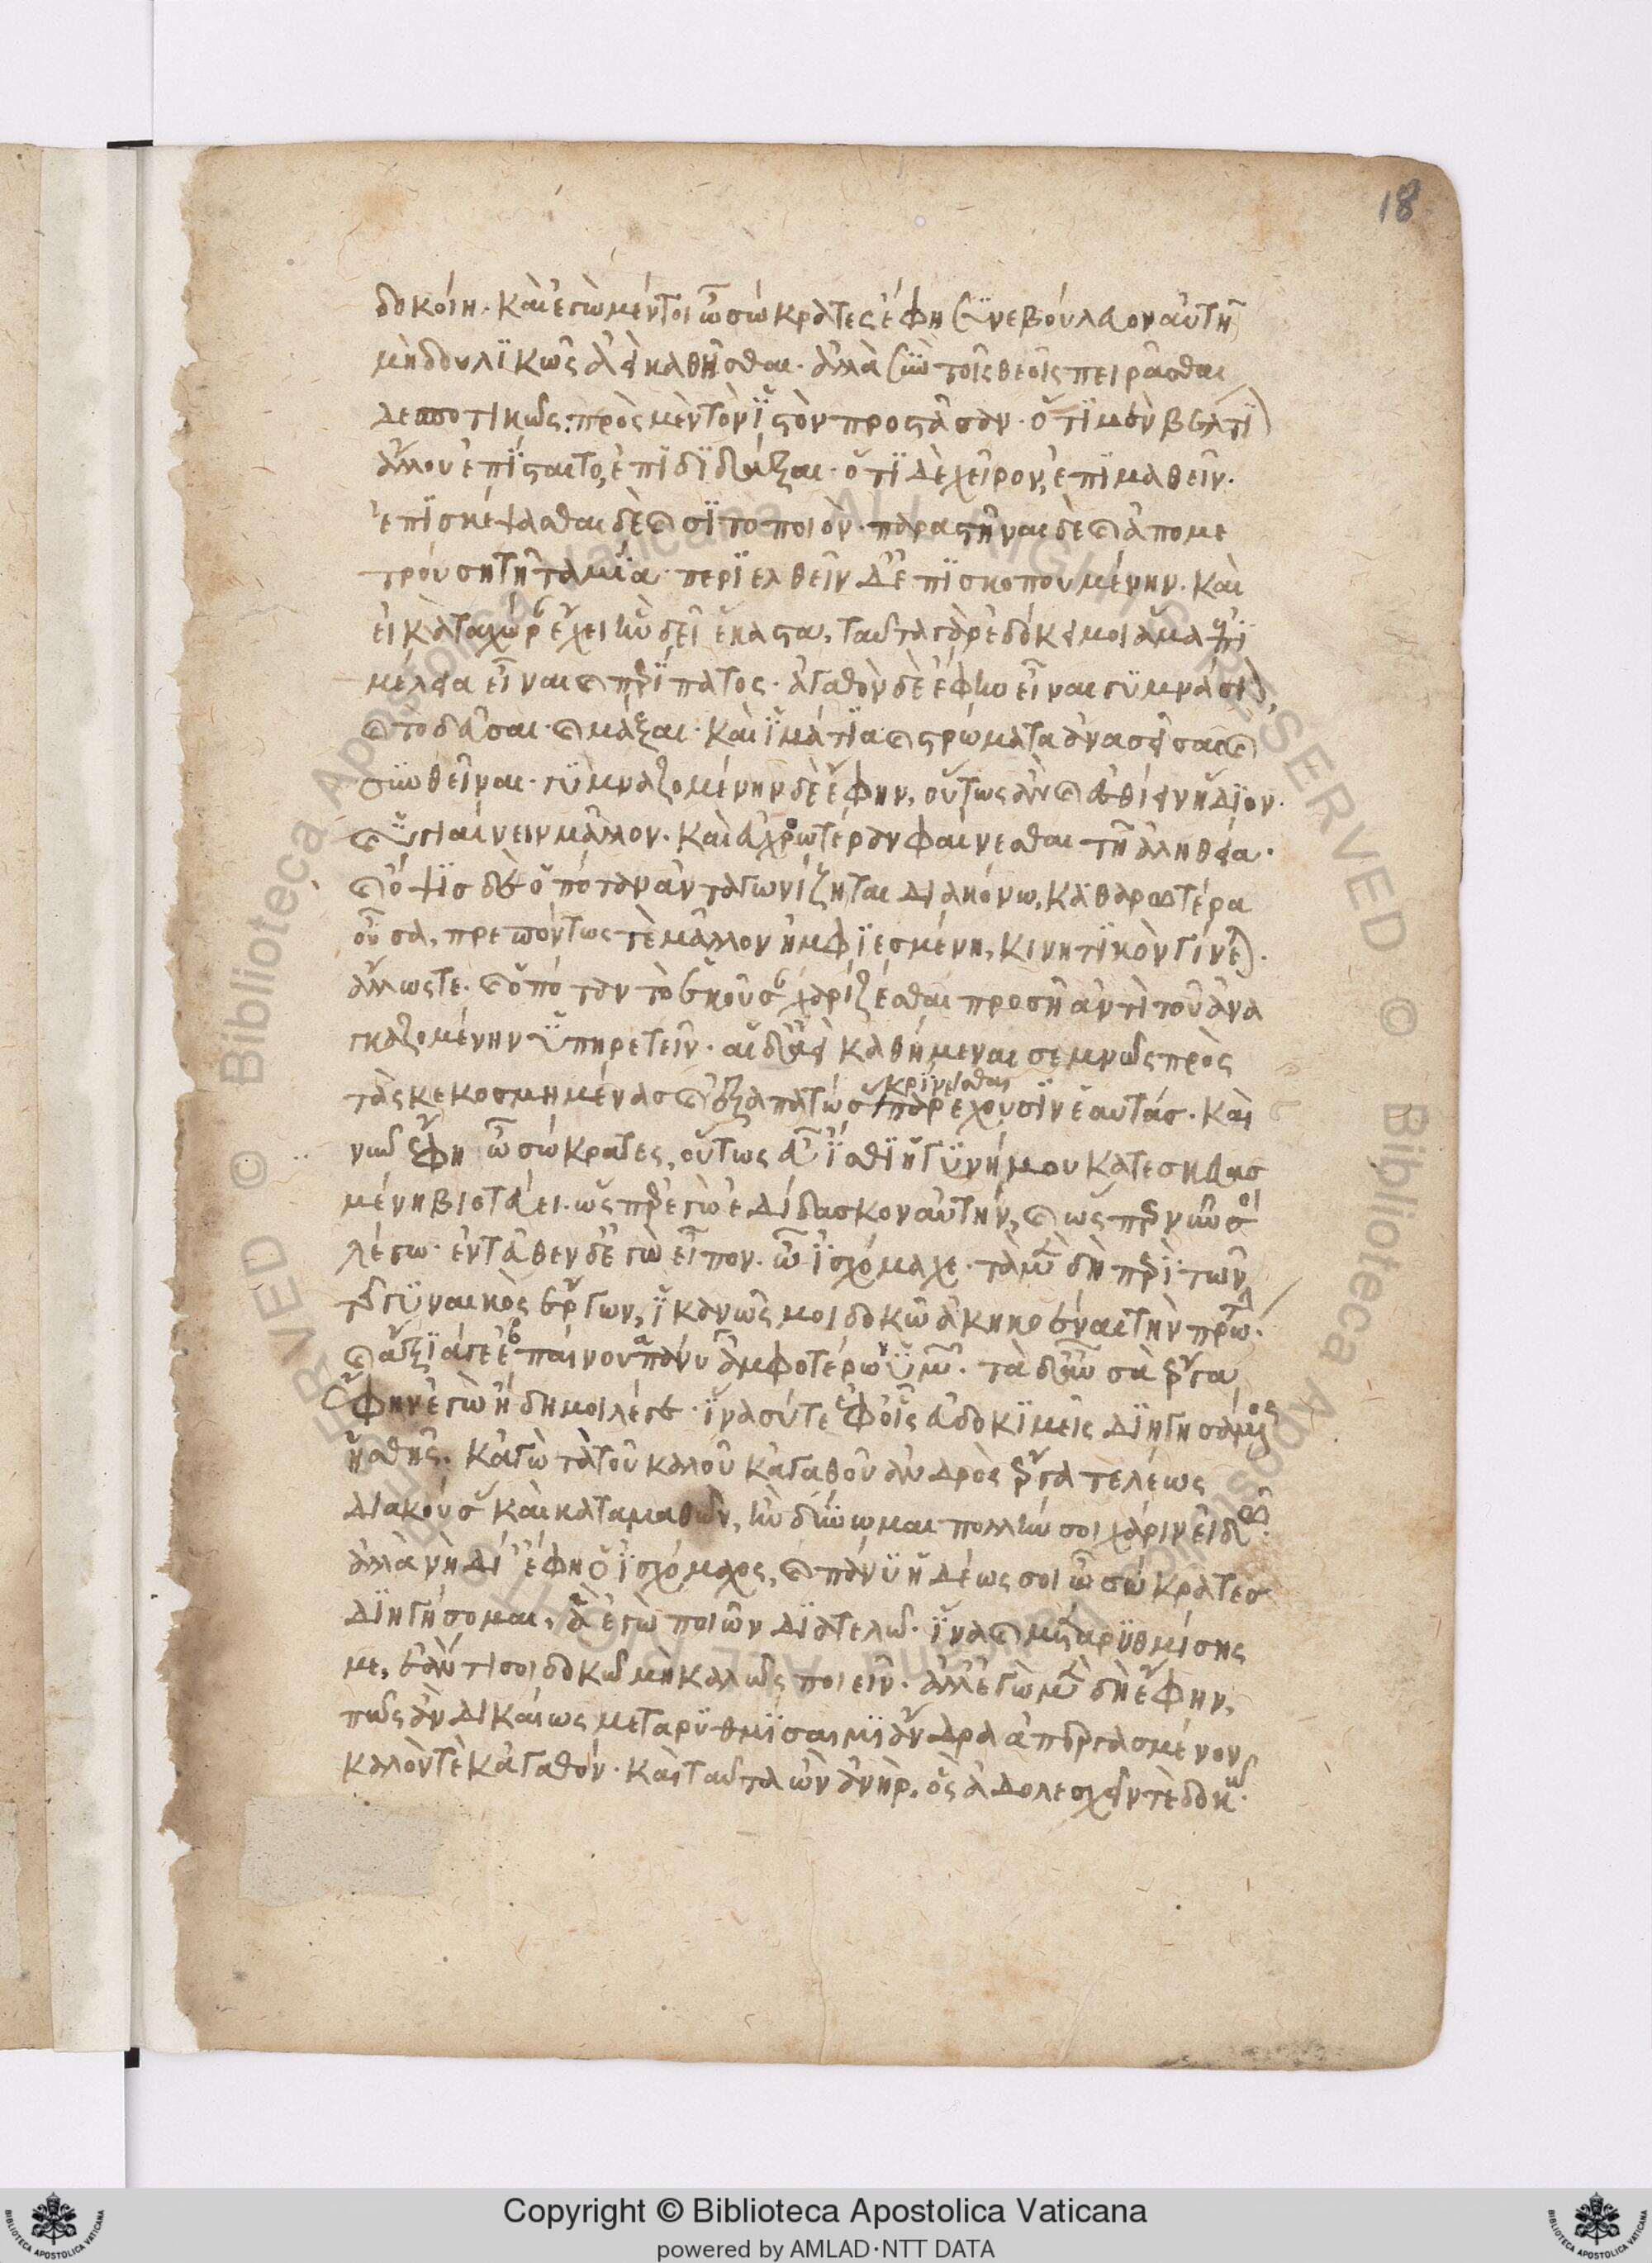 18
δοκοίη· καὶ ἐγὼ μέντοι ὦ σώκρατες ἔφη συνεβούλευον αὐτῆ
μὴ δουλϊκῶς ἀεὶ καθῆσθαι· ἀλλὰ σὺν τοῖς θεοῖς πειρᾶσθαι
δεσποτικῶς: πρὸς μὲν τὸν ϊστὸν προστᾶσαν· ὅτϊ μὲν βέλτϊ
ἄλλου ἐπΐσταιτο, ἐπιδϊδάξαι· ὅτϊ δὲ χεῖρον, ἐπϊμαθεῖν·
ἐπϊσκέψασθαι δὲ καὶ σϊτοποιόν· παραστῆναι δὲ καὶ ἀπομε
τρούση τῆ ταμΐα· περϊελθεῖν δ' ἐπϊσκοπουμένην· καὶ
εἰ κατὰ χώρ ἔχει ἣν δεῖ ἕκαστα, ταῦτα γὰρ ἐδόκει μοι ἅμα ἐπϊ
μέλεια εἶναι καὶ περΐπατος· ἀγαθὸν δὲ ἔφην εἶναι γυμνάσιον,
καὶ τὸ δεῦσαι· καὶ μάξαι· καὶ ϊμάτϊα καὶ στρώματα ἀνασεῖσαι καὶ
συνθεῖναι· γυμναζομένην δὲ ἔφην, οὕτως ἂν καὶ ἐσθίειν ἥδϊον·
καὶ ὑγιαίνειν μᾶλλον· καὶ εὐχροωτέραν φαίνεσθαι τῆ ἀληθεία·
καὶ ὄψϊς δὲ ὁπόταν ἀνταγωνίζηται διακόνω, καθαρωτέρα
οὖσα, πρεπόντως τὲ μᾶλλον ἠμφϊεσμένη, κινητϊκὸν γίνεται·
ἄλλωστε· καὶ ὁπόταν τὸ ἑκοῦσ χαρίζεσθαι προσῆ ἀντὶ τοῦ ἀνα
γκαζομένην ὑπηρετεῖν· αἱ δ' ἀεὶ καθήμεναι σεμνῶς πρὸς
κρίνεσθαι
τὰς κεκοσμημένας καὶ ἐξαπατώσ παρέχουσϊν ἑαυτάς· καὶ
νῦν ἔφη ὦ σώκρατες, οὕτως εὖ ϊσθϊ ἡ γυνή μου κατεσκευασ
μένη βιοτεύει· ὥσπερ ἐγὼ ἐδίδασκον αὐτὴν, καὶ ὥσπερ νῦν σοὶ
λέγω· ἐντεῦθεν δ' ἐγὼ εἶπον· ὦ ϊσχόμαχε· τὰ μὲν δὴ περϊ τῶν
τῆς γυναικὸς ἔργων, ϊκανῶς μοι δοκῶ ἀκηκοέναι τὴν πρώ·
καὶ ἄξϊά γε ἐπαίνου πάνυ ἀμφοτέρων ὑμῶν· τὰ δ' αὖ σὰ ἔργα
ἔφην ἐγὼ ἤδη μοι λέγε· ϊνα σύ τε ἐφ' οἷς εὐδοκϊμεῖς διηγησάμενος
ἡσθῆς· κἀγὼ τὰ τοῦ καλοῦ κἀγαθοῦ ἀνδρὸς ἔργα τελέως
διακούσ καὶ καταμαθὼν, ἢν δύνωμαι πολλήν σοι χάριν εἰδῶ
ἀλλὰ νὴ δί' ἔφη ὁ ϊσχόμαχος, καὶ πάνυ ἡδέως σοι ὦ σώκρατες
διηγήσομαι, ἃ ἐγὼ ποιῶν διατελῶ· ϊνα καὶ μεταρυθμίσης
με, ἐάν τί σοι δοκῶ μὴ καλῶς ποιεῖν· ἀλλ' ἐγὼ μὲν δὴ ἔφην,
πῶς ἂν δικαίως μεταρυθμϊσαιμϊ ἄνδρα ἀπειργασμένον
καλόν τὲ κἀγαθόν· καὶ ταῦτα ὢν ἀνὴρ, ὃς ἀδολεσχεῖν τὲ δοκῶ·
Copyright © Biblioteca Apostolica Vaticana
powered by AMLAD·NTT DATA